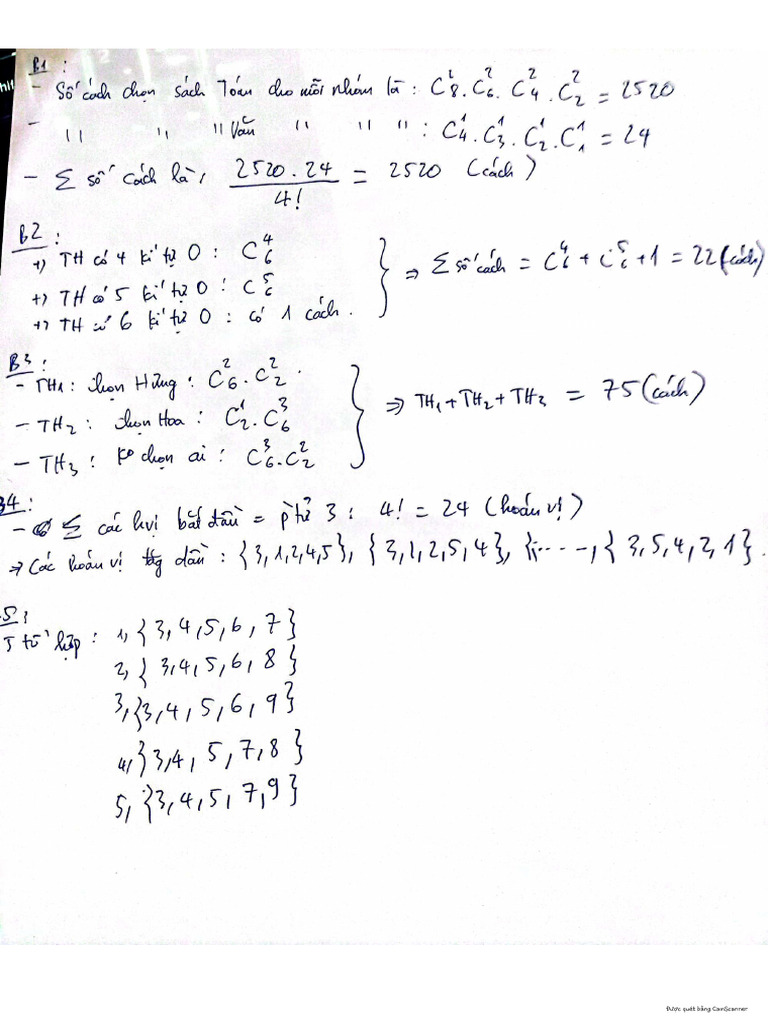 B1:
- Số cách chọn sách Toán cho mỗi nhóm là: C²₈. C²₆. C²₄. C²₂ = 2520
- '' '' '' Văn '' '' '' : C¹₄. C¹₃. C¹₂. C¹₁ = 24
- Σ số cách là, 2520.24 / 4! = 2520 (cách)
B2:
+) TH có 4 kí tự 0: C⁴₆
+) TH có 5 kí tự 0: C⁵₆
+) TH có 6 kí tự 0: có 1 cách.
⇒ Σ số cách = C⁴₆ + C⁵₆ + 1 = 22 (cách)
B3:
- TH1: chọn Hưng: C²₆. C²₂.
- TH₂: chọn Hoa: C¹₂. C³₆
- TH₃: ko chọn ai: C³₆. C²₂
⇒ TH₁ + TH₂ + TH₃ = 75 (cách)
B4:
- Σ các hvị bắt đầu = ptử 3: 4! = 24 (hoán vị)
⇒ Các hoán vị tăg dần: {3,1,2,4,5}, {3,1,2,5,4}, {....., {3,5,4,2,1}.
5:
5 tổ hợp: 1, {3,4,5,6,7}
2, {3,4,5,6,8}
3, {3,4,5,6,9}
4, {3,4,5,7,8}
5, {3,4,5,7,9}
Được quét bằng CamScanner